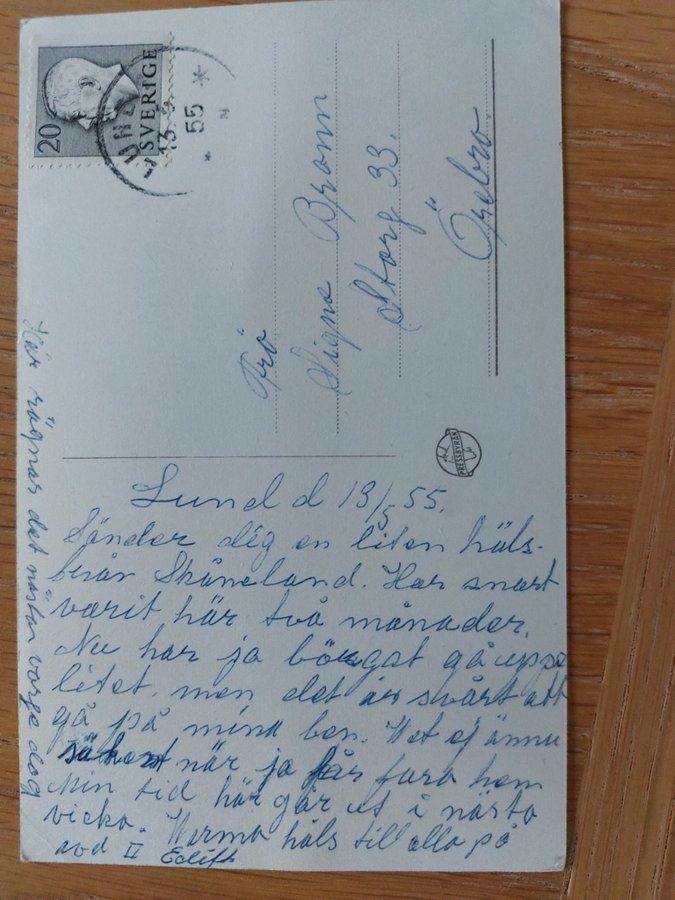 20
SVERIGE
LUND
13. 5
55
Frö
Signe Bronn
Storg 33.
Örebro.
PRESSBYRÅN
Lund d 13/5 55.
Sänder dig en liten häls-
från Skåneland. Har snart
varit här två månader.
Nu har ja börgat gå uppe
litet. men det är svårt att
gå på mina ben. Vet ej ännu
säkert när ja får fara hem
Min tid här går ut i nästa
vicka. Warma häls till alla på
avd II
Här rägnar det nästan varje dag